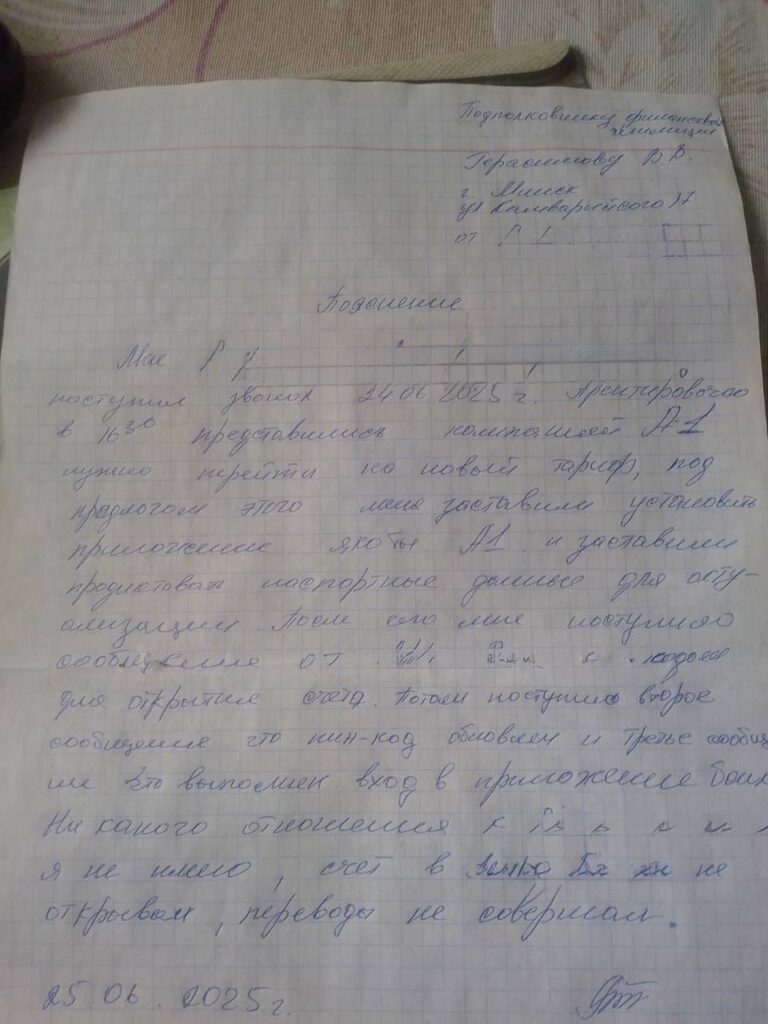 Подполковнику финансовой милиции
Герасимову В.В.
г. Минск
ул Кальварийского 17
от
Пояснение
Мне
поступил звонок 24.06 2025 г. Ориентировочно
в 16 30 представились компанией А1
нужно перейти на новый тариф, под
предлогом этого меня заставили установить
приложение якобы А1 и заставили
продиктовать паспортные данные для акту-
ализации. После чего мне поступило
сообщение от кодом
для открытие счета. Потом поступило второе
сообщение что пин-код обновлен и третье сообще
ние что выполнен вход в приложение банк
Ни какого отношения к
я не имею, счет в не
открывал, переводы не совершал.
25.06.2025 г.